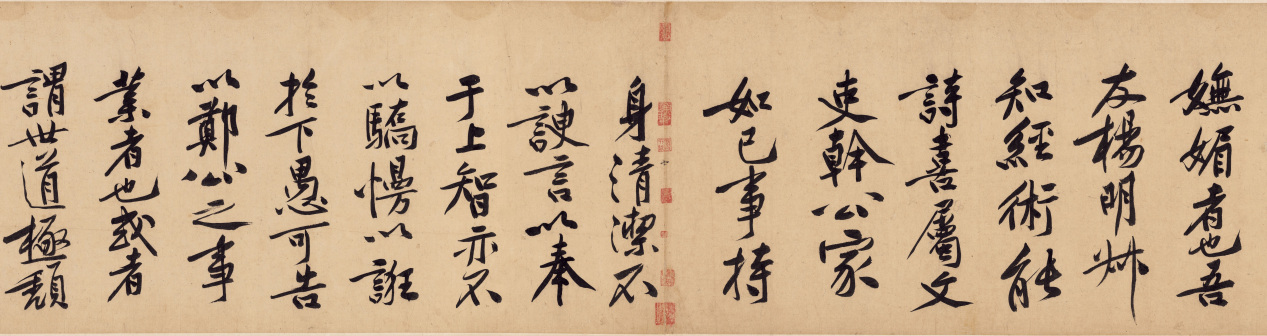 嫵媚者也吾
友楊明叔
知經術能
詩喜屬文
吏幹公家
如已事持
身清潔不
以諛言以奉
于上智亦不
以驕慢以誑
於下愚可告
以鄭公之事
業者也或者
謂世道極頹